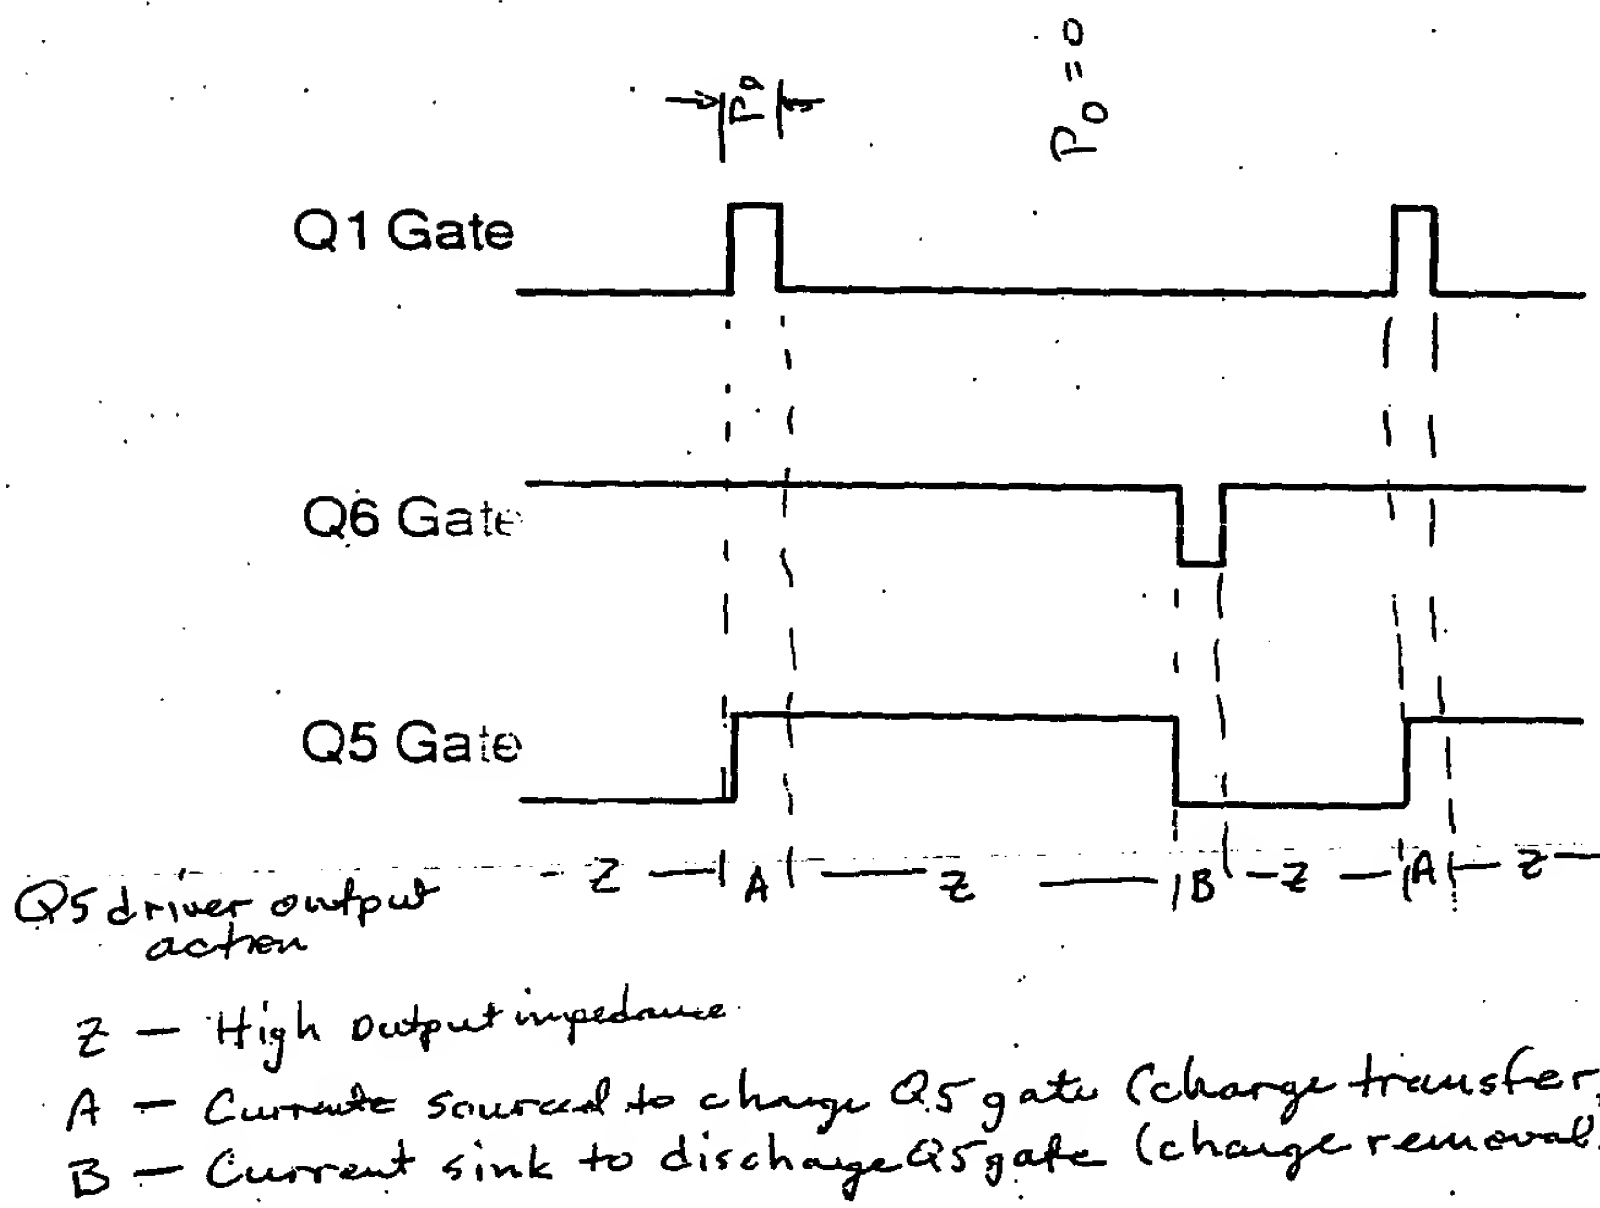 P0
P0 = 0
Q1 Gate
Q6 Gate
Q5 Gate
Z A Z B Z A Z
Q5 driver output
action
Z – High output impedance
A – Current sourced to charge Q5 gate (charge transfer)
B – Current sink to discharge Q5 gate (charge removal)